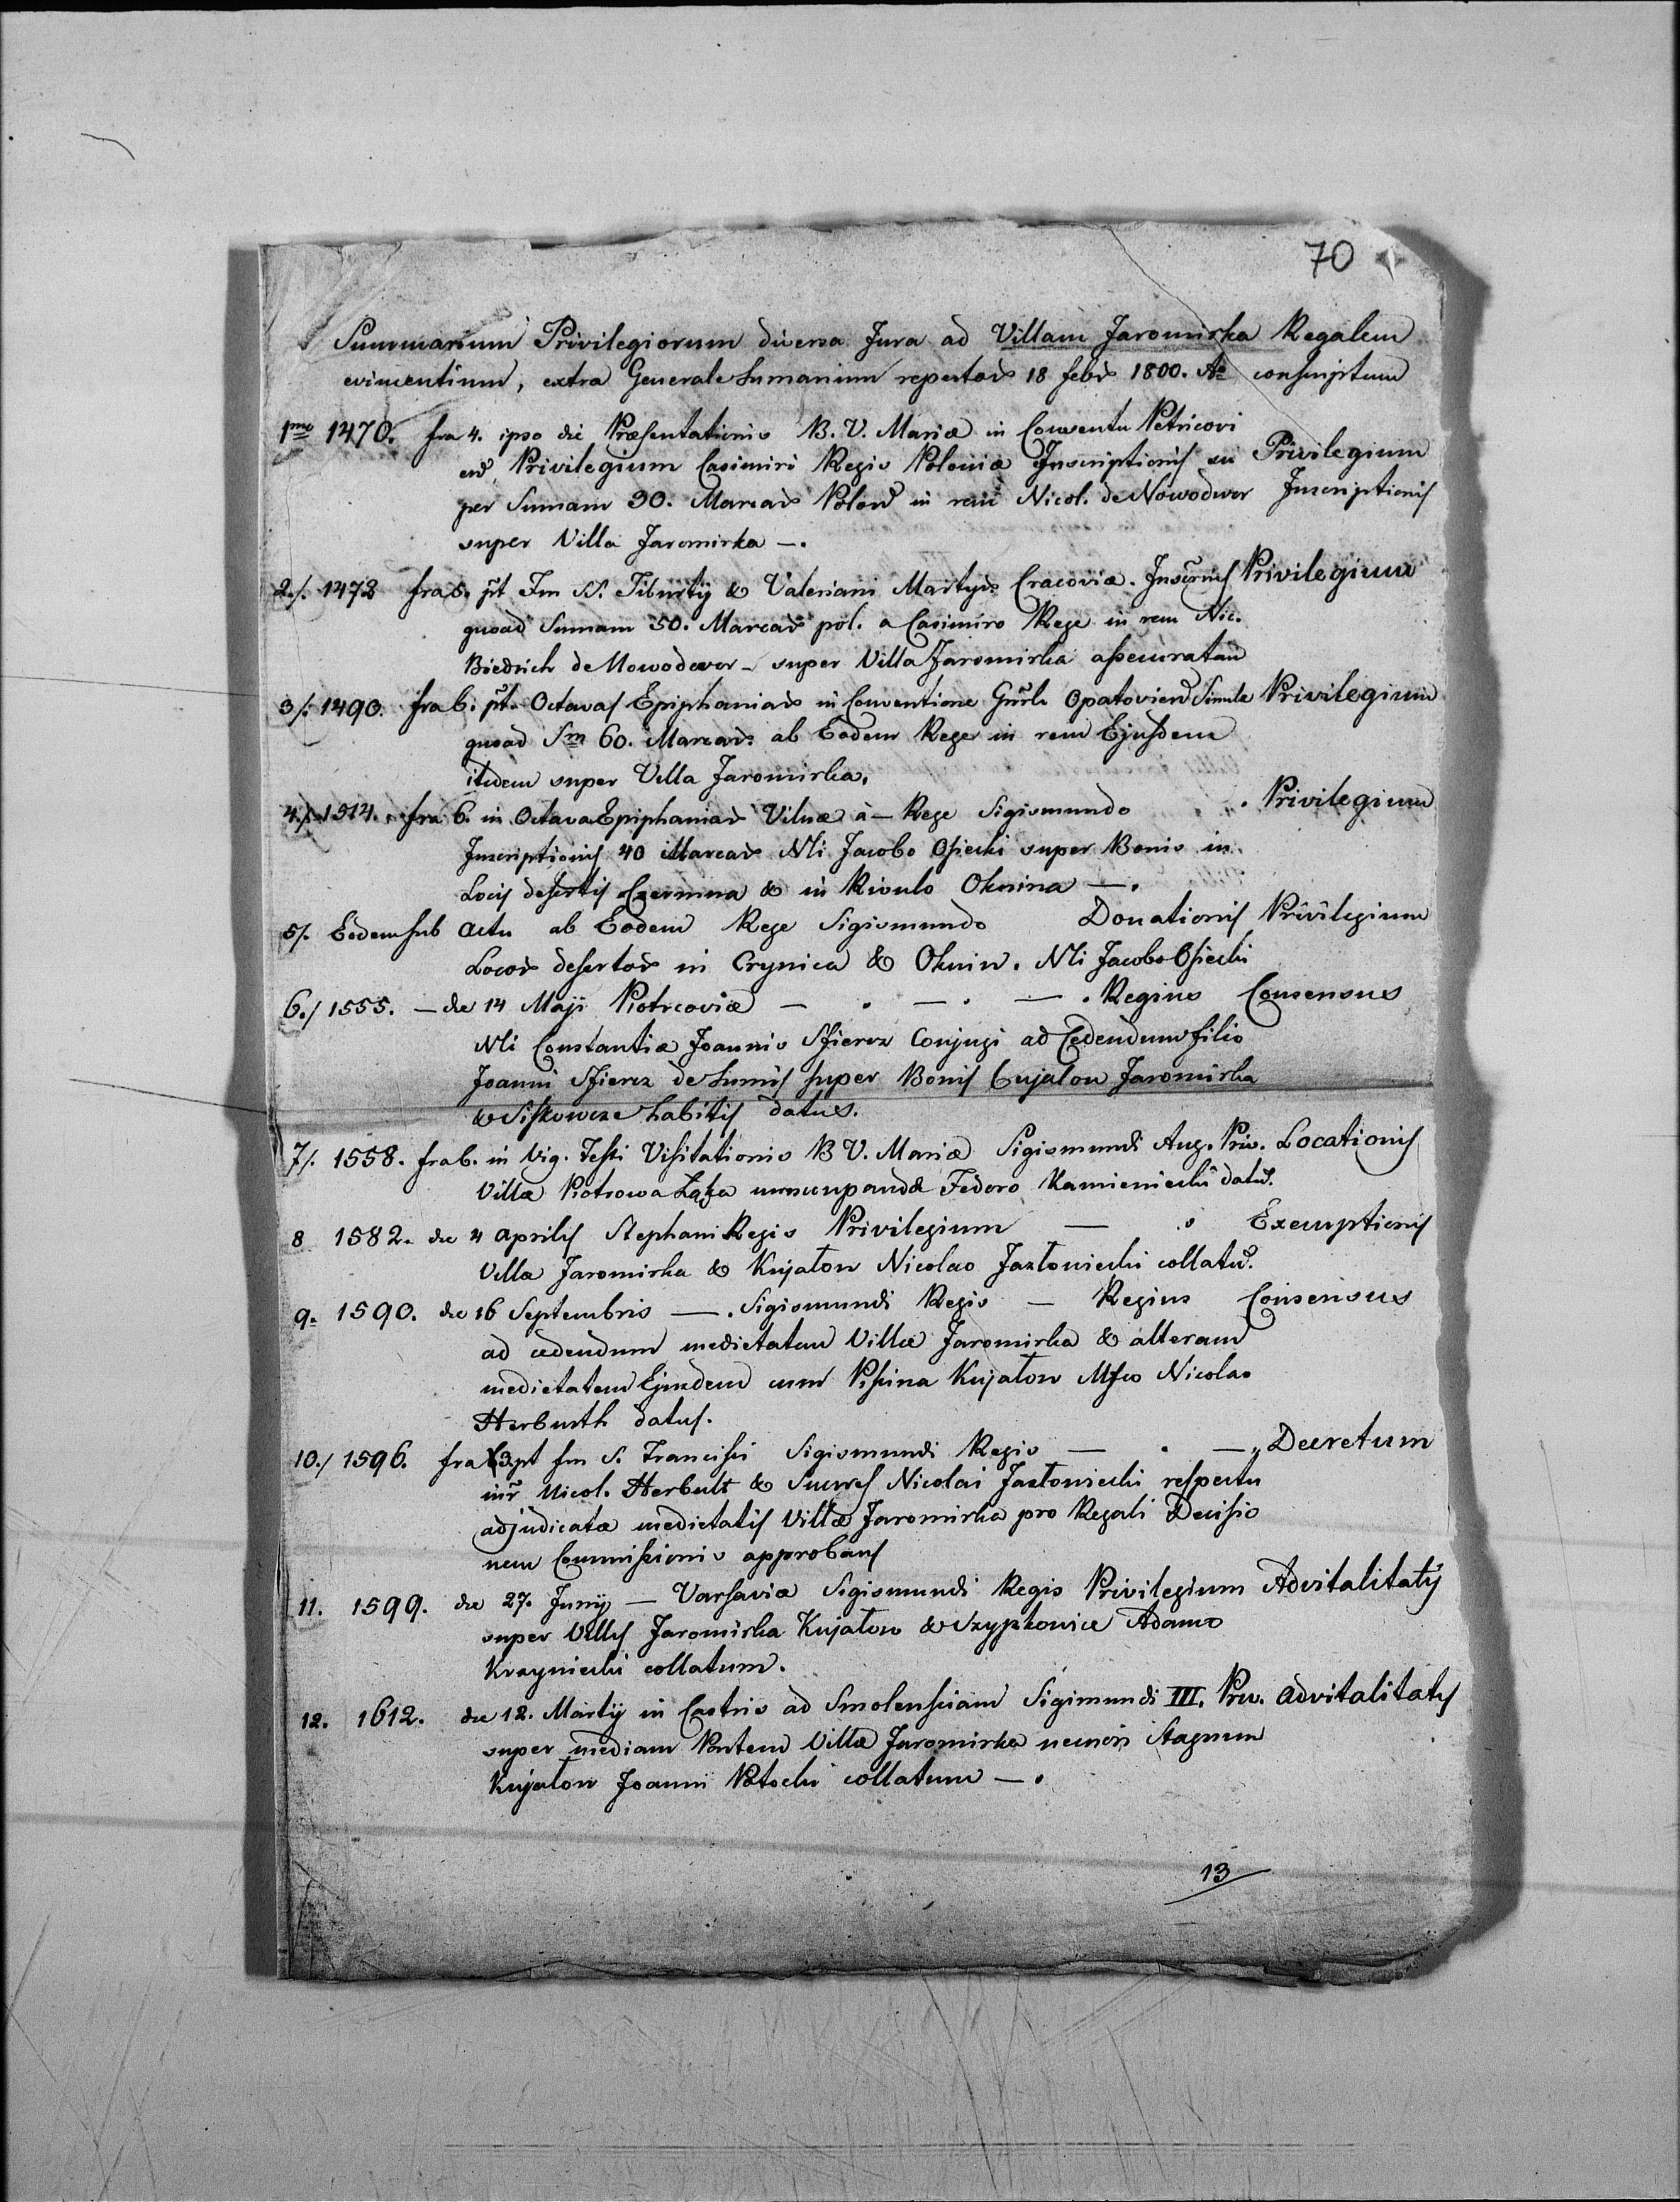 70
Summarium Privilegiorum diversa Jura ad Villam Jaromirka Regalem
evincentium, extra Generale Sumarium repertor 18 febr 1800. Ao conscriptum
1mo 1470. fra 4. ipso die Præsentationis B. V. Mariæ in Conventu Petricovi
en. Privilegium Casimiri Regis Poloniæ Inscriptionis Privilegium
per Sumam 30. Marcar Polon in rem Nicol. de Nowodwor Inscriptionis
super Villa Jaromirka —.
2./. 1472 fra 6. pt Fm SS. Tiburtij & Valeriani Martyr. Cracoviæ. Inscrnis Privilegium
quoad Sumam 50. Marcar pol. a Casimiro Rege in rem Nic.
Biedrich de Nowodwor - super Villa Jaromirka assecuratam
3/. 1490. fra 6. pt. Octavas Epiphaniar in Conventione Gnrli Opatovien Simile Privilegium
quoad Sm 60. Marcar. ab Eodem Rege in rem Ejusdem
itidem super Villa Jaromirka.
4./. 1514. fra 6. in Octava Epiphaniar Vilnæ à — Rege Sigismundo . Privilegium
Inscriptionis 40 Marcar Nli Jacobo Osiecki super Bonis in
Locis desertis Czermna & in Rivulo Oknina —.
5/. Eodem sub Actu ab Eodem Rege Sigismundo Donationis Privilegium
Locor desertor in Crynica & Oknin. Nli Jacobo Osiecki
6./ 1555. — die 14 Maji Piotrcoviæ — . — . — . Regius Consensus
Nli Constantiæ Joannis Sfiercz Conjugi ad Cedendum filio
Joanni Sfiercz de Sumis super Bonis Cujalow Jaromirka
& Siskowcze habitis datus.
7/. 1558. fra 6. in Vig. Festi Visitationis B V. Mariæ Sigismundi Aug. Priv. Locationis
Villæ Piotrowa Łąka nuncupandæ Fedoro Kamieniecki datu.
8 1582. die 4 Aprilis Stephani Regis Privilegium — . Exemptionis
Villæ Jaromirka & Kujatow Nicolao Jazłowiecki collatu.
9. 1590. die 16 Septembris —. Sigismundi Regis — Regius Consensus
ad cedendum medietatem Villæ Jaromirka & alteram
medietatem Ejusdem cum Piscina Kujatow Mfco Nicolao
Herburth datus.
10./ 1596. fra 3. pt fm S. Francisci Sigismundi Regis — . — „ Decretum
intr Nicol. Herbult & Sucres Nicolai Jazłowiecki respectu
adjudicatæ medietatis Villæ Jaromirka pro Regali Decisio
nem Commissionis approbans
11. 1599. die 27. Junij — Varsaviæ Sigismundi Regis Privilegium Advitalitatis
super Villis Jaromirka Kujatow & Szypkowice Adamo
Krzyniecki collatum.
12. 1612. die 12. Martij in Castris ad Smolensciam Sigimundi III. Priv. Advitalitatis
super mediam Partem Villæ Jaromirka Stagnum
Kujatow Joanni Potocki collatum —.
13